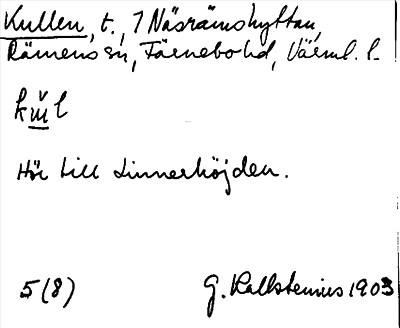 Kullen, t., 7 Näsrämshyttan,
Rämens sn, Färnebo hd, Värml. l.
Hör till Linnerhöjden.
5(8) G. Kallstenius 1903